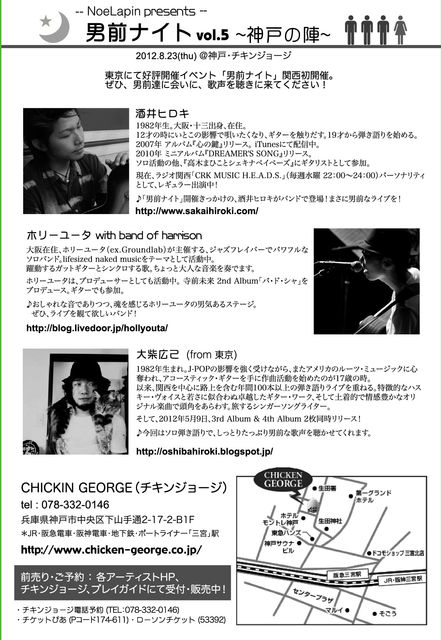 -- NoeLapin presents --
男前ナイト vol.5 ~神戸の陣~
2012.8.23(thu) @神戸・チキンジョージ
東京にて好評開催イベント「男前ナイト」関西初開催。
ぜひ、男前達に会いに、歌声を聴きに来てください！
酒井ヒロキ
1982年生。大阪・十三出身、在住。
12才の時にいとこの影響で唄いたくなり、ギターを触りだす。19才から弾き語りを始める。
2007年 アルバム『心の鍵』リリース。iTunesにて配信中。
2010年 ミニアルバム『DREAMER'S SONG』リリース。
ソロ活動の他、『高木まひことシェキナベイベーズ』にギタリストとして参加。
現在、ラジオ関西「CRK MUSIC H.E.A.D.S.」（毎週水曜 22:00~24:00）パーソナリティ
として、レギュラー出演中！
♪「男前ナイト」開催きっかけの、酒井ヒロキがバンドで登場！まさに男前なライブを！
http://www.sakaihiroki.com/
ホリーユータ with band of harrison
大阪在住、ホリーユータ（ex.Groundlab）が主催する、ジャズフレイバーでパワフルな
ソロバンド。lifesized naked musicをテーマとして活動中。
躍動するガットギターとシンクロする歌。ちょっと大人な音楽を奏でます。
ホリーユータは、プロデューサーとしても活動中。寺前未来 2nd Album「パ・ド・シャ」を
プロデュース。ギターでも参加。
♪おしゃれな音でありつつ、魂を感じるホリーユータの男気あるステージ。
ぜひ、ライブを観て欲しいバンド！
http://blog.livedoor.jp/hollyouta/
大柴広己 (from 東京)
1982年生まれ。J-POPの影響を強く受けながら、またアメリカのルーツ・ミュージックに心
奪われ、アコースティック・ギターを手に作曲活動を始めたのが17歳の時。
以来、関西を中心に路上を含む年間100本以上の弾き語りライブを重ねる。特徴的なハス
キー・ヴォイスと若さに似合わぬ卓越したギター・ワーク、そして土着的で情感豊かなオリ
ジナル楽曲で頭角をあらわす、旅するシンガーソングライター。
そして、2012年5月9日、3rd Album & 4th Album 2枚同時リリース！
♪今回はソロ弾き語りで、しっとりたっぷり男前な歌声を聴かせてくれます。
http://oshibahiroki.blogspot.jp/
CHICKIN GEORGE（チキンジョージ）
tel : 078-332-0146
兵庫県神戸市中央区下山手通2-17-2-B1F
＊JR・阪急電車・阪神電車・地下鉄・ポートライナー「三宮」駅
http://www.chicken-george.co.jp/
前売り・ご予約： 各アーティストHP、
チキンジョージ、プレイガイドにて受付・販売中！
・チキンジョージ電話予約 (TEL:078-332-0146)
・チケットぴあ (Pコード174-611) ・ローソンチケット (53392)
CHICKEN
GEORGE
生田署
第一グランド
ホテル
ホテル
モントレ神戸
生田神社
東急ハンズ
神戸サウナ
ビル
ドコモショップ 三宮北店
阪急三宮駅
JR・阪神三宮駅
センタープラザ
マルイ
そごう